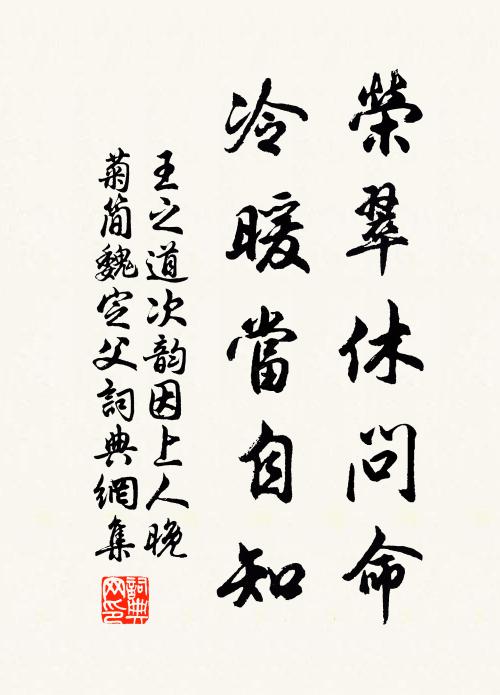 榮翠休問命
冷暖當自知
王之道次韵因上人晚
菊简魏定父詞典網集
詞典
网印